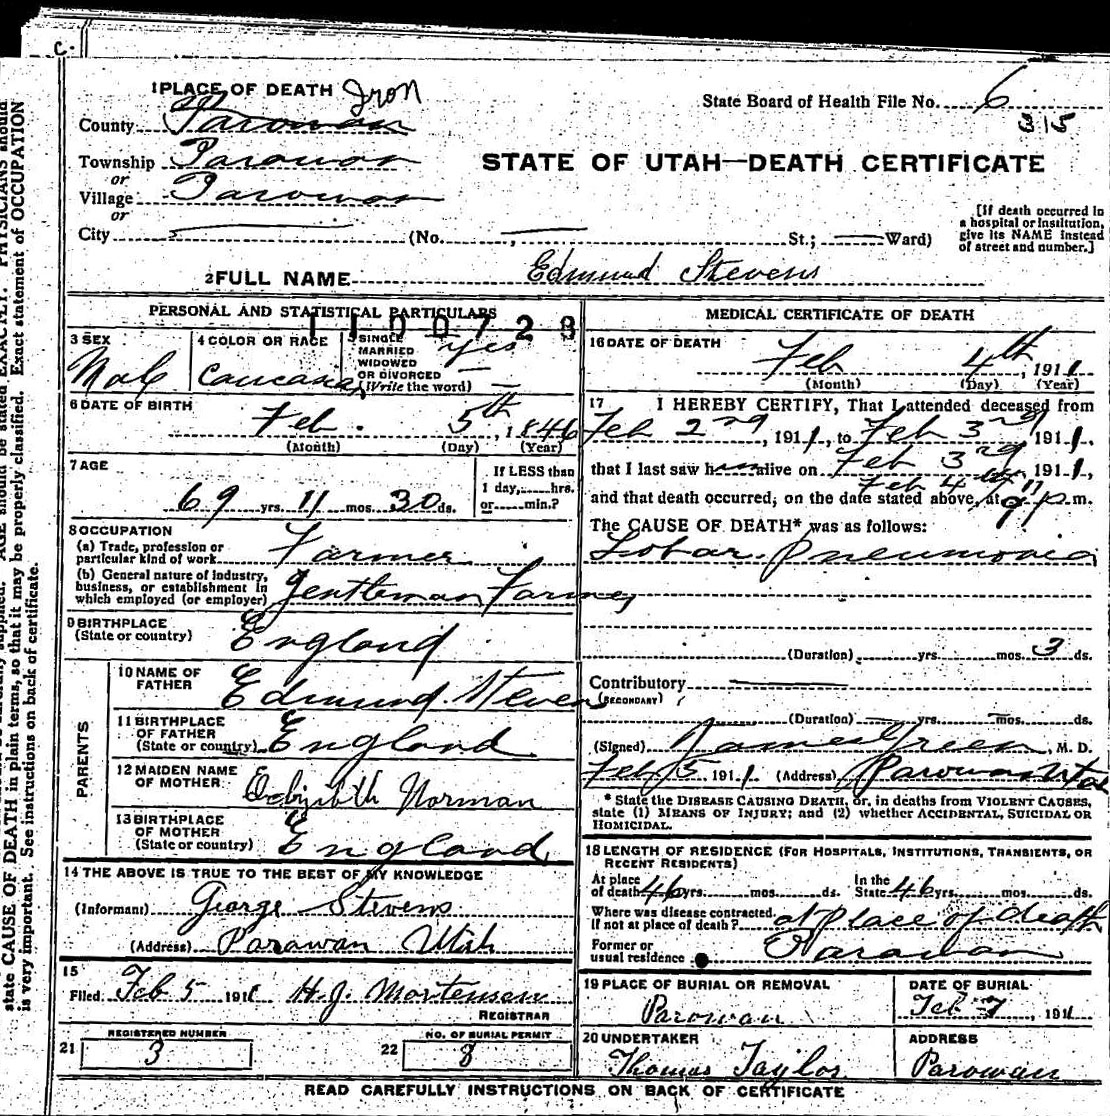 C.
1 PLACE OF DEATH Iron
State Board of Health File No. 6
County Parowan
15
Township Parowan
STATE OF UTAH—DEATH CERTIFICATE
or
Village Parowan
or
City (No. , St.; Ward)
[If death occurred in a hospital or institution, give its NAME instead of street and number.]
2 FULL NAME Edmund Stevens
PERSONAL AND STATISTICAL PARTICULARS
1100728
3 SEX
Male
4 COLOR OR RACE
Caucasian
5 SINGLE
MARRIED yes
WIDOWED
OR DIVORCED
(Write the word)
6 DATE OF BIRTH
Feb. 5th, 1846
(Month) (Day) (Year)
7 AGE
69 yrs. 11 mos. 30 ds.
If LESS than
1 day, hrs.
or min.?
8 OCCUPATION
(a) Trade, profession or
particular kind of work Farmer
(b) General nature of industry,
business, or establishment in
which employed (or employer) Gentleman Farmer
9 BIRTHPLACE
(State or country) England
PARENTS
10 NAME OF
FATHER Edmund Stevens
11 BIRTHPLACE
OF FATHER
(State or country) England
12 MAIDEN NAME
OF MOTHER Norman
13 BIRTHPLACE
OF MOTHER
(State or country) England
14 THE ABOVE IS TRUE TO THE BEST OF MY KNOWLEDGE
(Informant) George Stevens
(Address) Parawan Utah
15
Filed Feb 5 1911 H.J. Mortensen
REGISTRAR
REGISTERED NUMBER
21 3
NO. OF BURIAL PERMIT
22 8
MEDICAL CERTIFICATE OF DEATH
16 DATE OF DEATH
Feb 4th, 1911
(Month) (Day) (Year)
17 I HEREBY CERTIFY, That I attended deceased from
Feb 2nd, 1911, to Feb 3rd, 1911.
that I last saw h alive on Feb 3rd, 1911,
Feb 4th 11
and that death occurred, on the date stated above, at 9 p.m.
The CAUSE OF DEATH* was as follows:
Lobar Pneumonia
(Duration) yrs. mos. 3 ds.
Contributory
(SECONDARY)
(Duration) yrs. mos. ds.
(Signed) James Green, M. D.
Feb 5 1911. (Address) Parowan Utah
* State the DISEASE CAUSING DEATH, or, in deaths from VIOLENT CAUSES,
state (1) MEANS OF INJURY; and (2) whether ACCIDENTAL, SUICIDAL OR
HOMICIDAL.
18 LENGTH OF RESIDENCE (FOR HOSPITALS, INSTITUTIONS, TRANSIENTS, OR
RECENT RESIDENTS)
At place
of death 46 yrs. mos. ds. In the
State 46 yrs. mos. ds.
Where was disease contracted,
if not at place of death? at place of death
Former or
usual residence Parawan
19 PLACE OF BURIAL OR REMOVAL
Parowan
DATE OF BURIAL
Feb 7, 1911
20 UNDERTAKER
Thomas Taylor
ADDRESS
Parowan
READ CAREFULLY INSTRUCTIONS ON BACK OF CERTIFICATE
supplied. AGE should be stated EXACTLY. PHYSICIANS should
state CAUSE OF DEATH in plain terms, so that it may be properly classified. Exact statement of OCCUPATION
is very important. See instructions on back of certificate.